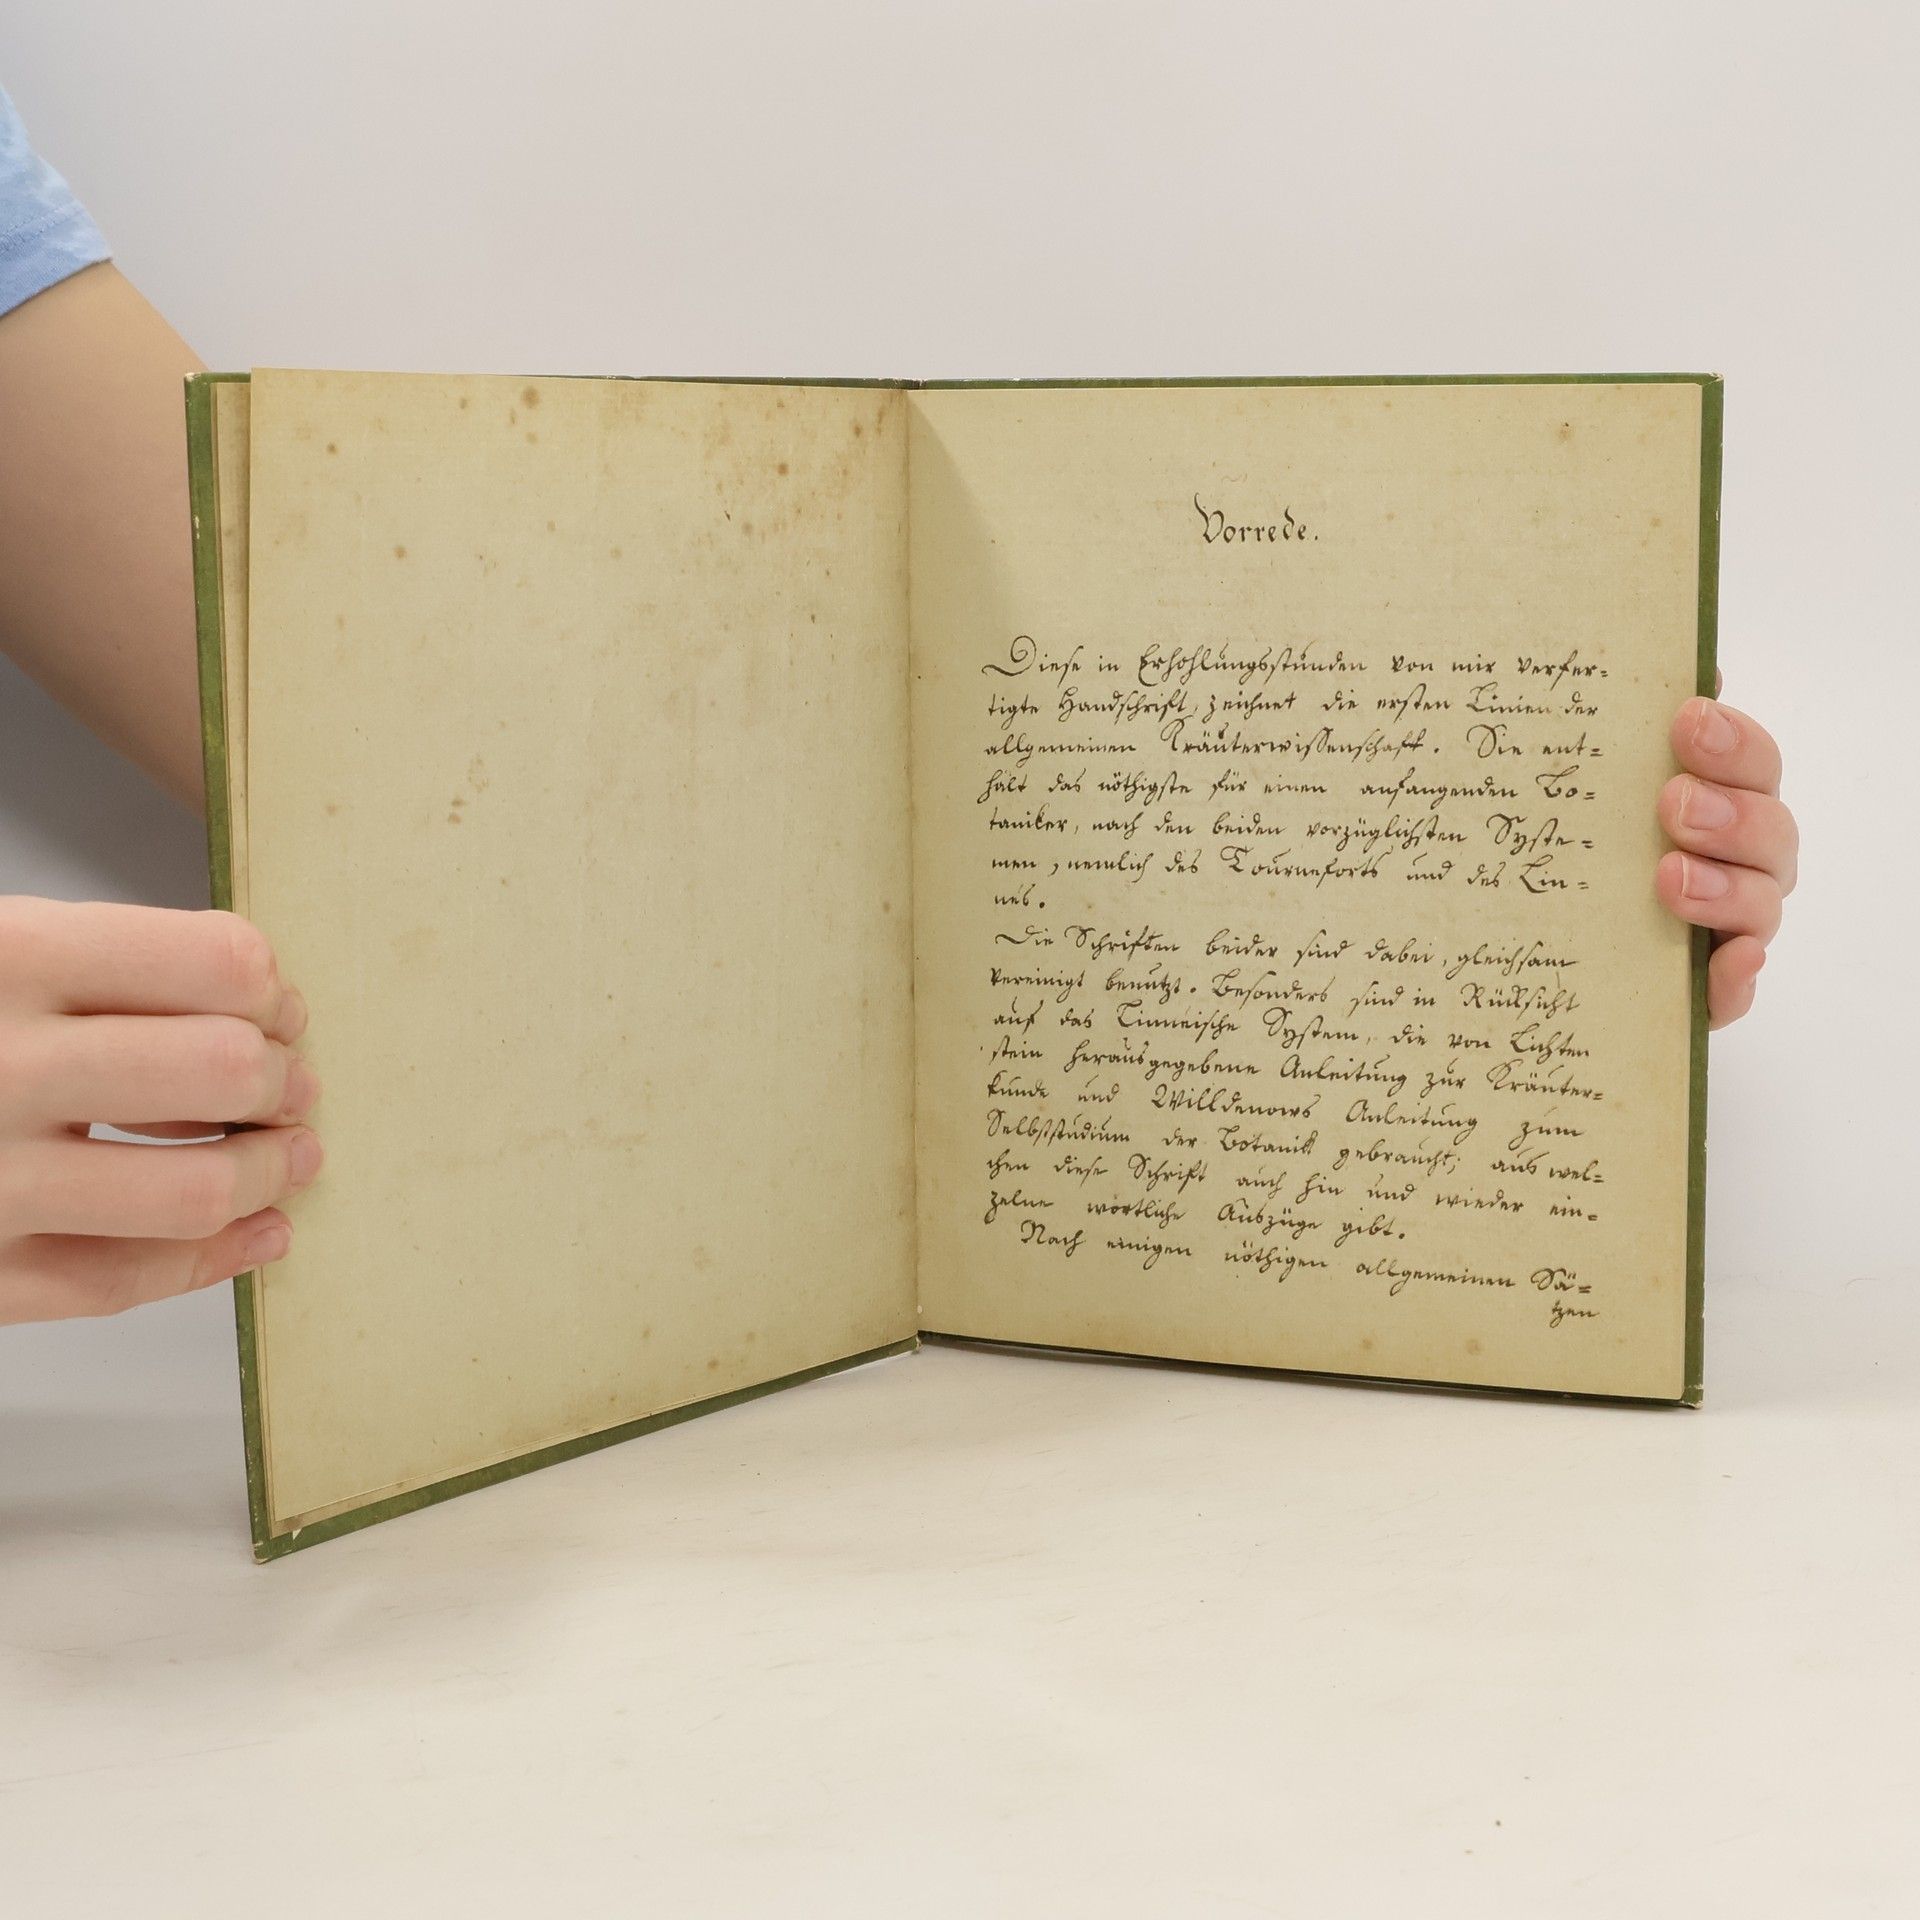 Vorrede.
Diese in Erhohlungsstunden von mir verfer=
tigte Handschrift, zeichnet die ersten Linien der
allgemeinen Kräuterwissenschaft. Sie ent=
hält das nöthigste für einen anfangenden Bo=
taniker, nach den beiden vorzüglichsten Syste=
men, nemlich des Tourneforts und des Lin=
nés.
Die Schriften beider sind dabei, gleichsam
vereinigt benutzt. Besonders sind in Rücksicht
auf das Linneische System, die von Lichten
stein herausgegebene Anleitung zur Kräuter=
kunde und Willdenows Anleitung zum
Selbststudium der Botanik gebraucht; aus wel=
chen diese Schrift auch hin und wieder ein=
zelne wörtliche Auszüge gibt.
Nach einigen nöthigen allgemeinen Sä=
tzen